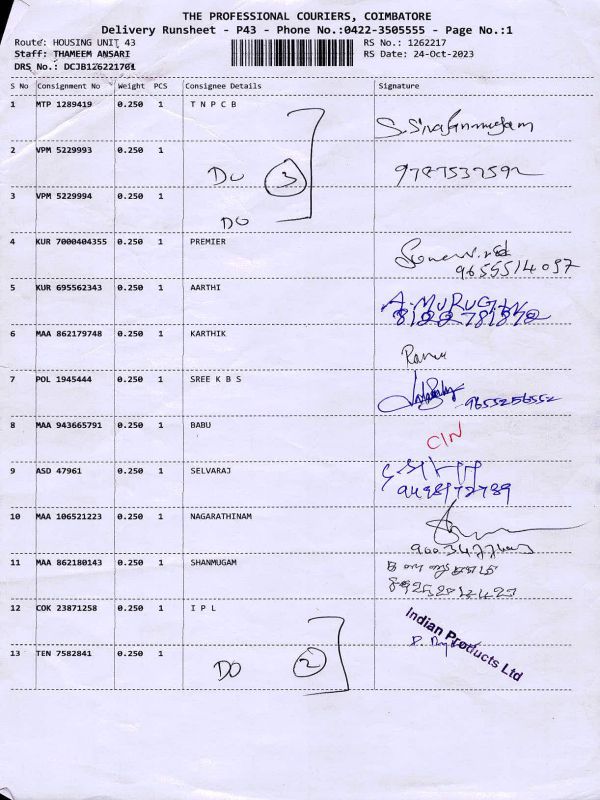 THE PROFESSIONAL COURIERS, COIMBATORE
Delivery Runsheet - P43 - Phone No.:0422-3505555 - Page No.:1
Route: HOUSING UNIT 43 RS No.: 1262217
Staff: THAMEEM ANSARI RS Date: 24-Oct-2023
DRS No.: DCJB126221701
S No Consignment No Weight PCS Consignee Details Signature
1 MTP 1289419 0.250 1 T N P C B
2 VPM 5229993 0.250 1
DO 3 9787537592
3 VPM 5229994 0.250 1
DO
4 KUR 7000404355 0.250 1 PREMIER
9655514097
5 KUR 695562343 0.250 1 AARTHI A. MURUGAN
6 MAA 862179748 0.250 1 KARTHIK
7 POL 1945444 0.250 1 SREE K B S
9655256552
8 MAA 943665791 0.250 1 BABU
CIN
9 ASD 47961 0.250 1 SELVARAJ
10 MAA 106521223 0.250 1 NAGARATHINAM
11 MAA 862180143 0.250 1 SHANMUGAM
12 COK 23871258 0.250 1 I P L
Indian Products Ltd
13 TEN 7582841 0.250 1
DO 2